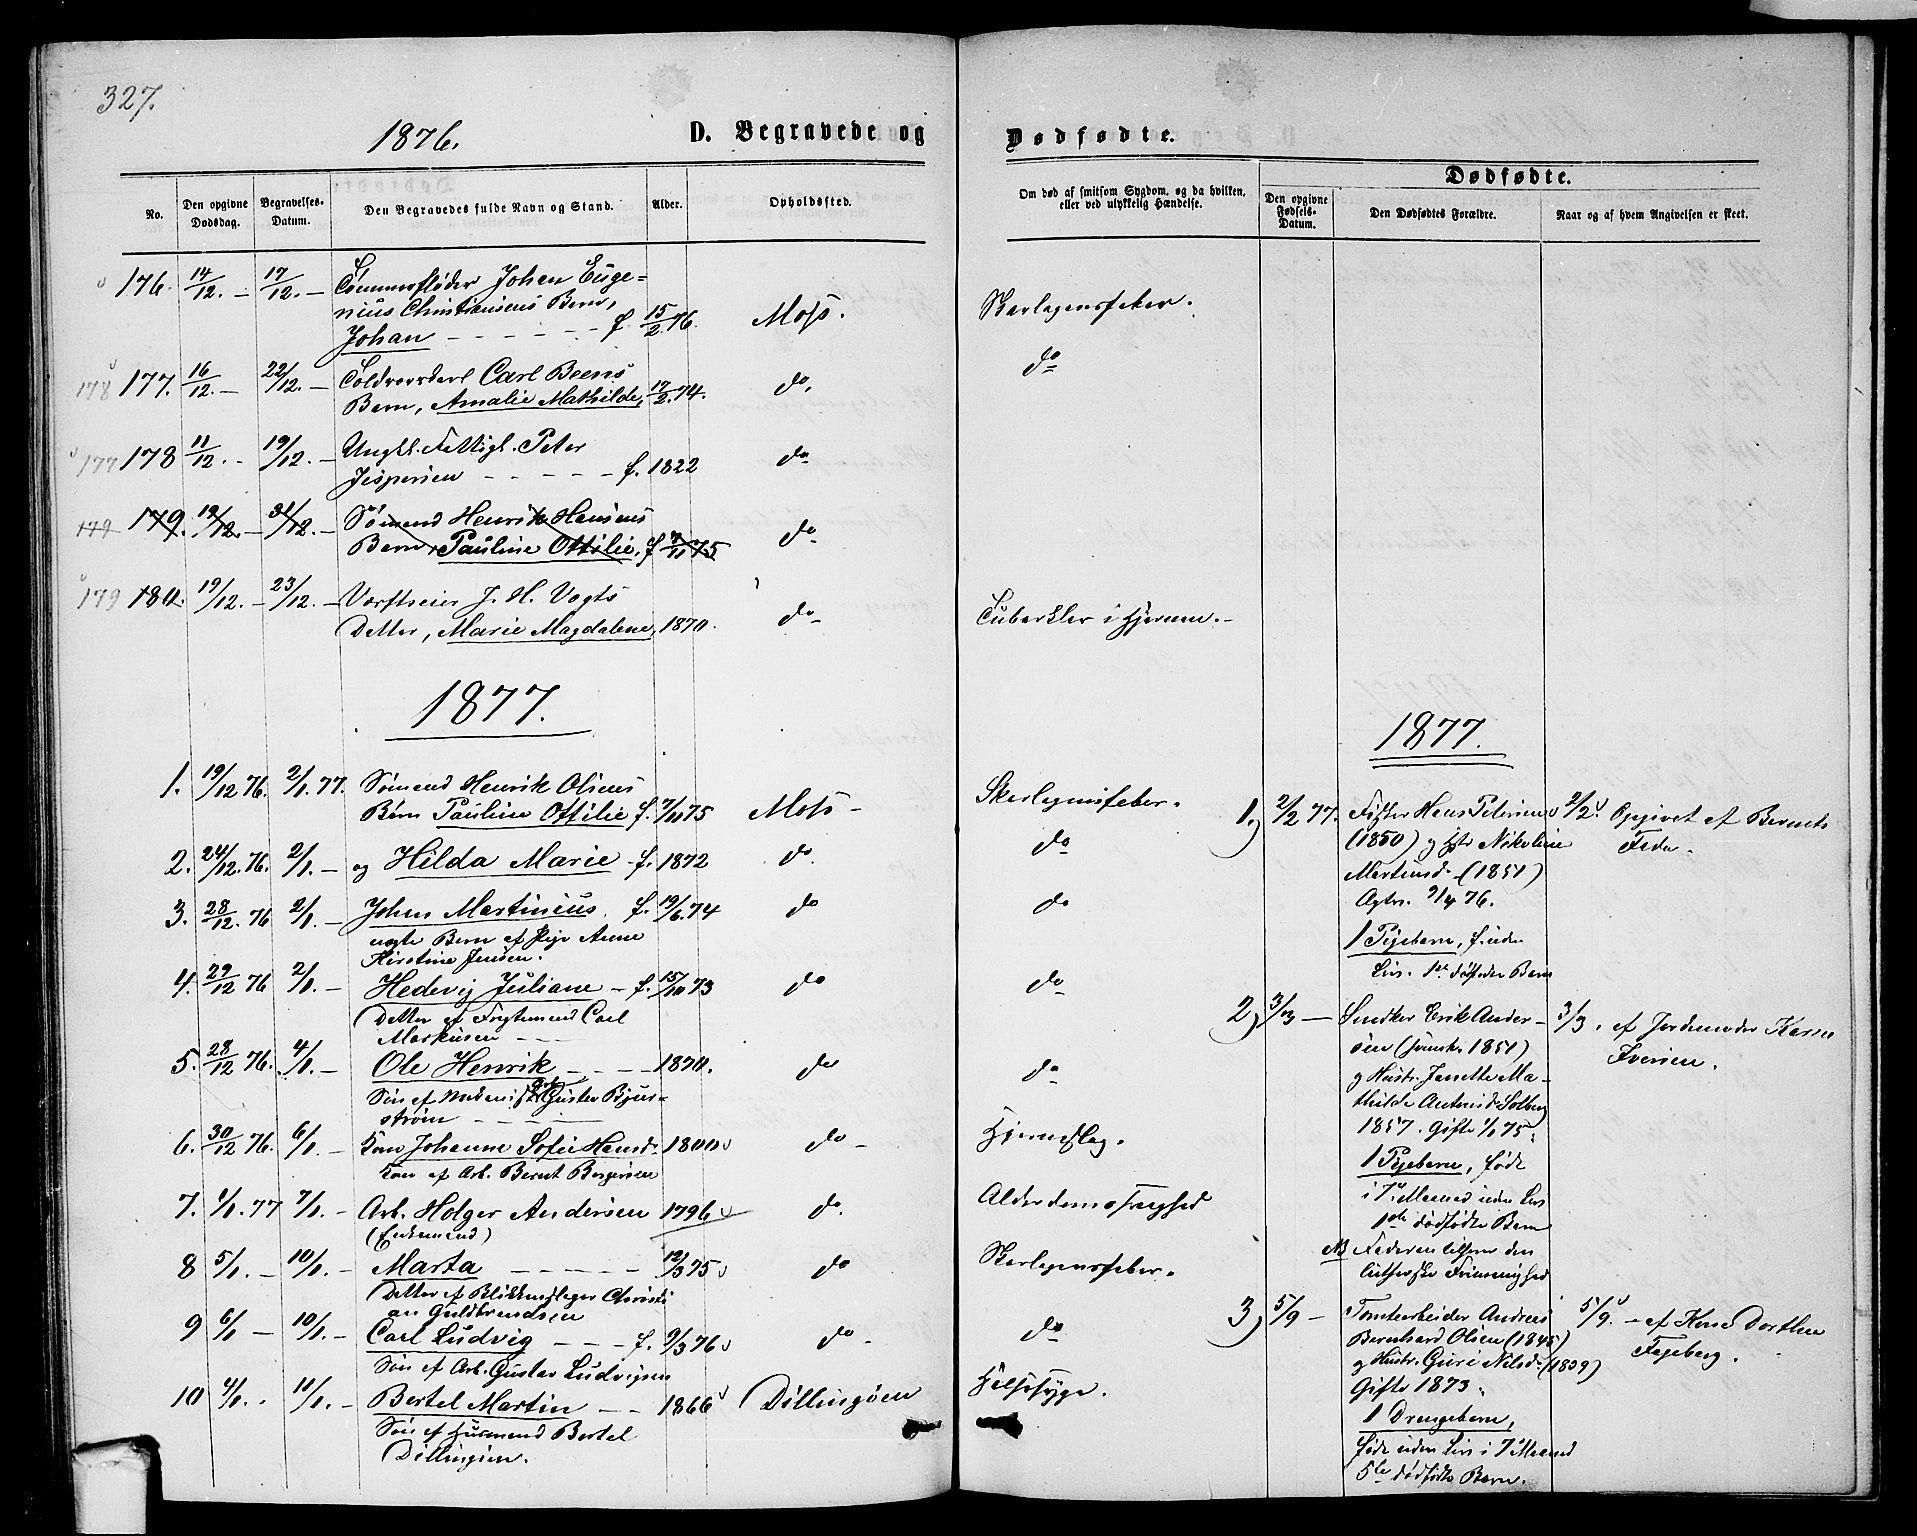 327.
1876.
D. Begravede og
No.
Den opgivne Dødsdag.
Begravelses-Datum.
Den Begravedes fulde Navn og Stand.
Alder.
Opholdssted.
176. 14/12. — 17/12. — Tømmerfløder Johan Euge=
nius Christiansens Barn,
Johan - - - - f. 15/2.76. Moss.
178 177. 16/12. — 22/12. — Toldroerskarl Carl Beens
Barn, Amalie Mathilde, 17/2.74. do.
177 178 11/12. — 19/12. — Ungkl. Fattigl. Peter
Jespersen - - - - - f. 1822 do
179 179. 19/12. — 31/12. — Sømand Henrik Hansens
Barn, Pauline Ottilie, f 7/11 75 do
179 180. 19/12. — 23/12. — Værftseier J. H. Vogts
Datter, Marie Magdalene, 1870. do
1877.
1. 19/12 76. 2/1. 77. Sømand Henrik Olsens
Børn Pauline Ottilie f. 7/11 75 Moss —
2. 24/12. 76. 2/1. — og Hilda Marie f. 1872 do
3. 28/12. 76 2/1. — Johan Martinius f. 19/6. 74 do
uægte Barn af Pige Anne
Kirstine Jensen.
4. 29/12 76 2/1. — Hedevig Juliane — f. 15/10 73 do
Datter af Fragtemand Carl
Markusen
5. 28/12 76. 4/1. — Ole Henrik - - - - 1870. do
Søn af Gustav Bjur=
strøm
6. 30/12 76. 6/1. — Kone Johanne Sofie Hansd. 1800 do —
Kone af Arb. Bernt Børgersen
7. 4/1. 77 7/1. — Arb. Holger Andersen 1796 do.
(Enkemand)
8 5/1. — 10/1. — Marta - - - - - 12/3 75 do
Datter af Blikkenslager Christi
an Guldbrandsen
9 6/1 — 10/1. — Carl Ludvig - - - f. 9/3 76 do
Søn af Arb. Gustav Ludvigsen
10 4/1. . 11/1. — Bertel Martin - - 1866 Dillingøen
Søn af Husmand Bertel
Dillingøen.
Dødfødte.
Om død af smitsom Sygdom, og da hvilken,
eller ved ulykkelig Hændelse.
Dødfødte.
Den opgivne Fødsels-Datum.
Den Dødfødtes Forældre.
Naar og af hvem Angivelsen er skeet.
Skarlagensfeber.
do
Tuberkler i Hjernen. —
1877.
Skarlagensfeber.
do
do
do
do
Hjerneslag.
Alderdomssvaghed
Skarlagensfeber.
do
Halssyge.
1.) 2/2 77. Fisker Hans Petersen 2/2. Opgivet af Barnets
(1850) og Hstr Nikoline Fader.
Martinsd. (1851)
Ægtev. 76.
1 Pigebarn, f. uden
Liv. 1ste dødfødte Barn
2) 3/3 — Snedker Erik Ander- 3/3. af Jordemoder Karen
sen (svensk. 1851) Iversen.
og Hustr. Janette Ma-
thilde Antonsd. Solberg
1857. Gifte 1/1 75.
1 Pigebarn, født
i 7de Maaned uden Liv
1ste dødfødte Barn
NB Faderen tilhører den
lutherske Frimenighed
3) 5/9 — Tomtearbeider Andreas 5/9. — af Kone Dorthea
Bernhard Olsen (1845) Fageberg.
og Hustr. Guri Nilsd. (1839)
Gifte 1873.
1 Drengebarn,
født uden Liv i 7 Maaned
5te dødfødte Barn.